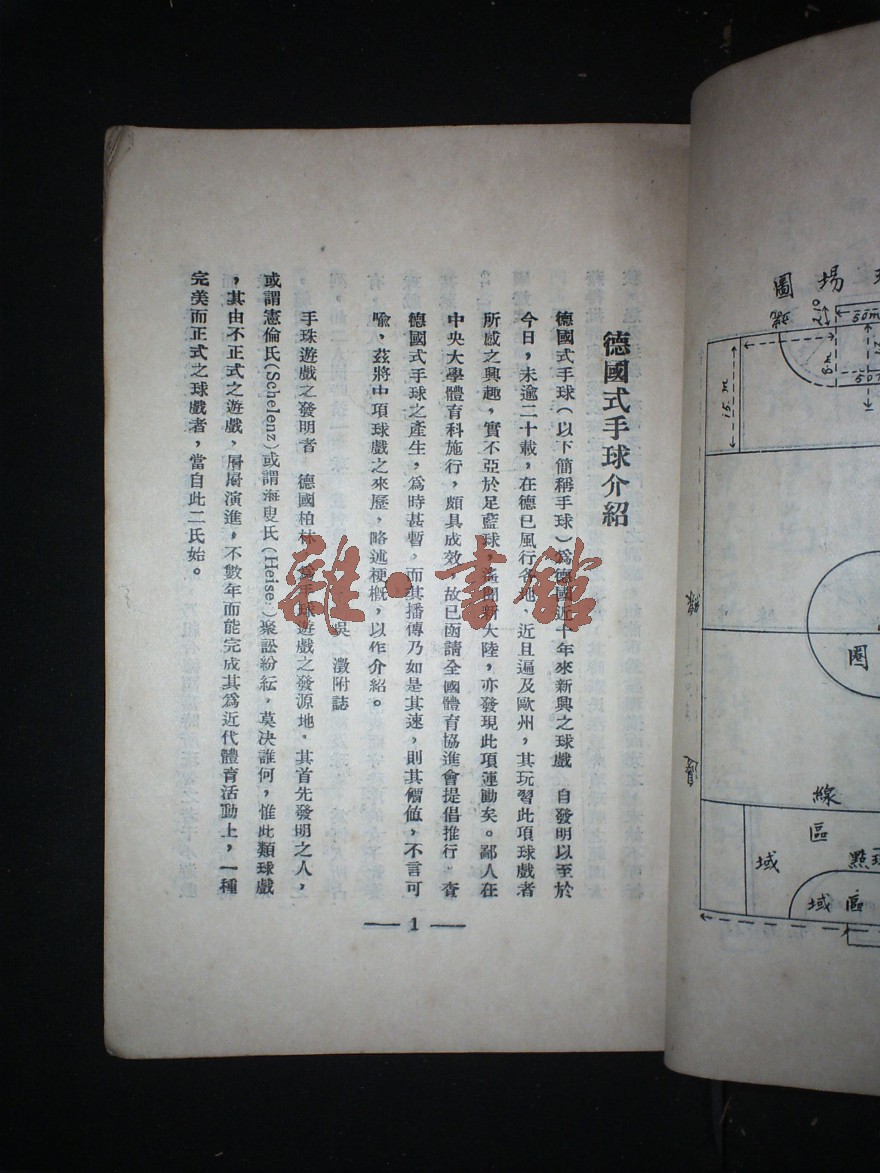 德國式手球介紹
德國式手球(以下簡稱手球)爲德國近十年來新興之球戲 自發明以至於
今日,未逾二十載,在德已風行各地、近且遍及歐州,其玩習此項球戲者
所感之興趣,實不亞於足藍球,遙聞新大陸,亦發現此項運動矣。鄙人在
中央大學體育科施行,頗具成效,故已函請全國體育協進會提倡推行。查
德國式手球之產生,爲時甚暫,而其播傳乃如是其速,則其價値,不言可
喩,茲將中項球戲之來歷,略述梗概,以作介紹。
吳 澂附誌
手珠遊戲之發明者 德國柏林,爲手球遊戲之發源地,其首先發明之人,
或謂憲倫氏(Schelenz)或謂海叟氏(Heiser)聚訟紛紜,莫决誰何,惟此類球戲
,其由不正式之遊戲,層層演進,不數年而能完成其爲近代體育活動上,一種
完美而正式之球戲者,當自此二氏始。
— 1 —
場圖
30m
15 m
圈
線
邊
線
區
域
點球
區域
雜·書館